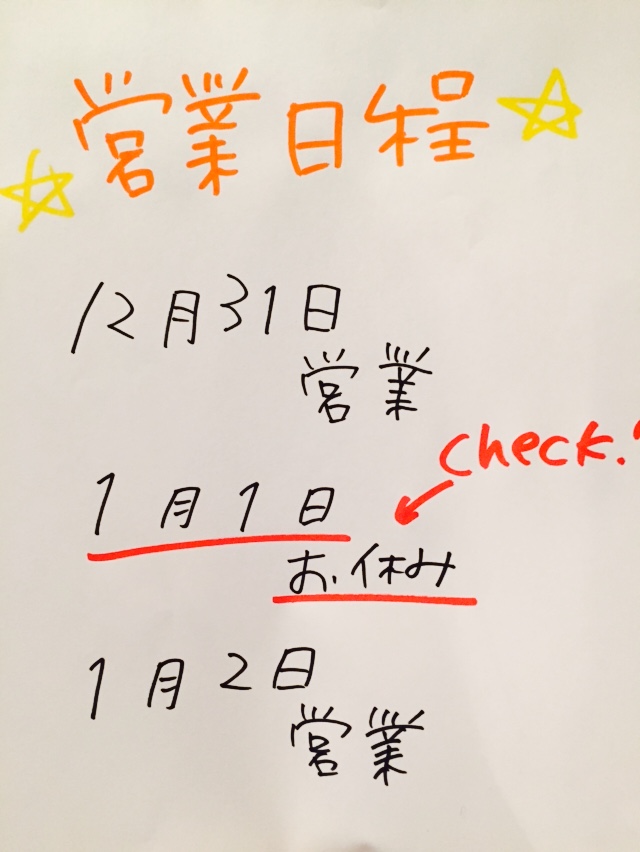 営業日程
12月31日
営業
check!
1月1日
お休み
1月2日
営業